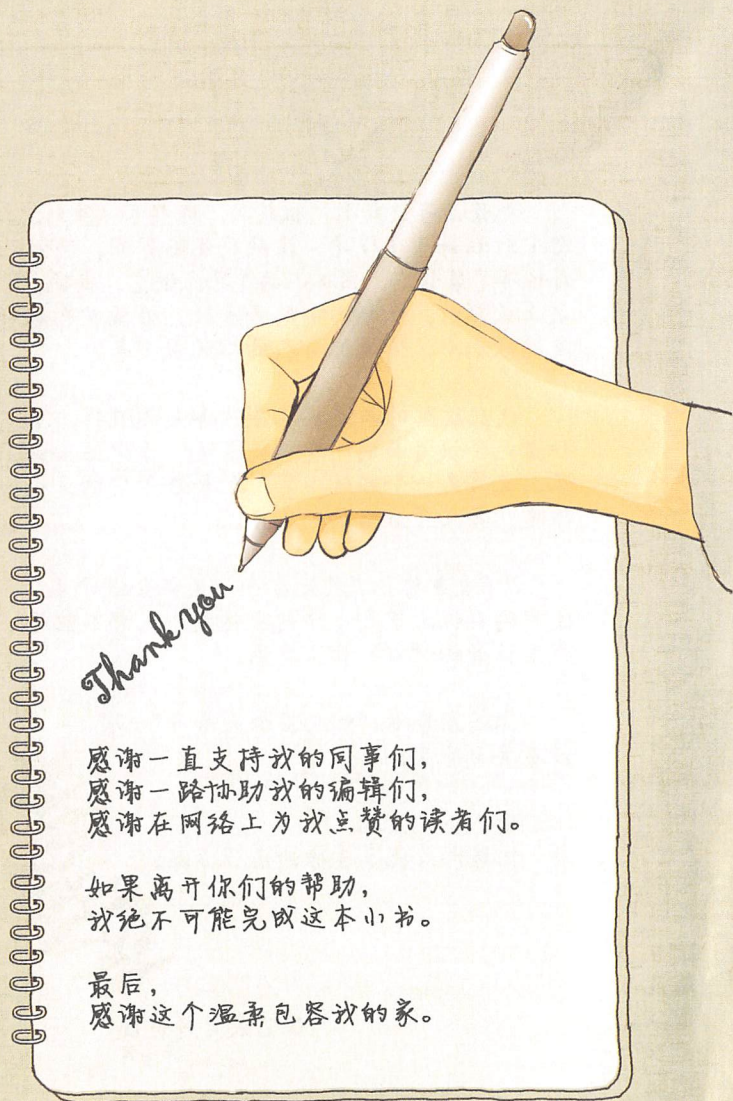 Thank you
感谢一直支持我的同事们，
感谢一路协助我的编辑们，
感谢在网络上为我点赞的读者们。
如果离开你们的帮助，
我绝不可能完成这本小书。
最后，
感谢这个温柔包容我的家。